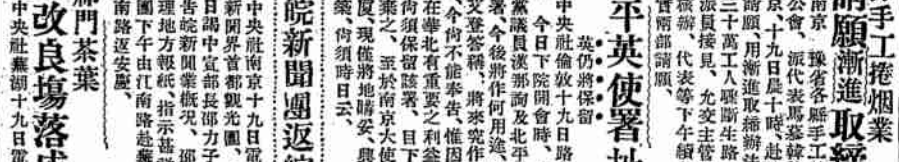 手工捲烟業
請願漸進取締
南京 豫省各縣手工
公會、派代表馬慕韓
京、十九日晨十時、赴
請願、用漸進取締辦法
三十萬工人驟斷生路
派員接見、允交主管
核辦、代表等下午續
實兩部請願、
平英使署址
英仍將保留
中央社倫敦十九日路
今日下院開會時、
黨議員漢那詢及北平
署、今後將作何用途、
文登答稱、將來究作
今尚不能奉告、惟因
在華北有重要之利益
尚須保留該署、目下
棄之、至於南京大使
廈、現僅將地購妥、興
築、尚須時日云、
皖新聞團返
中央社南京十九日電
新聞界首都觀光團、
日謁中宣部長邵力子
告皖新聞業概況、邵
理地方報紙、指示甚
團下午由江南路赴蕪
南路返安慶、
祁門茶葉
改良場落成
中央社蕪湖十九日電